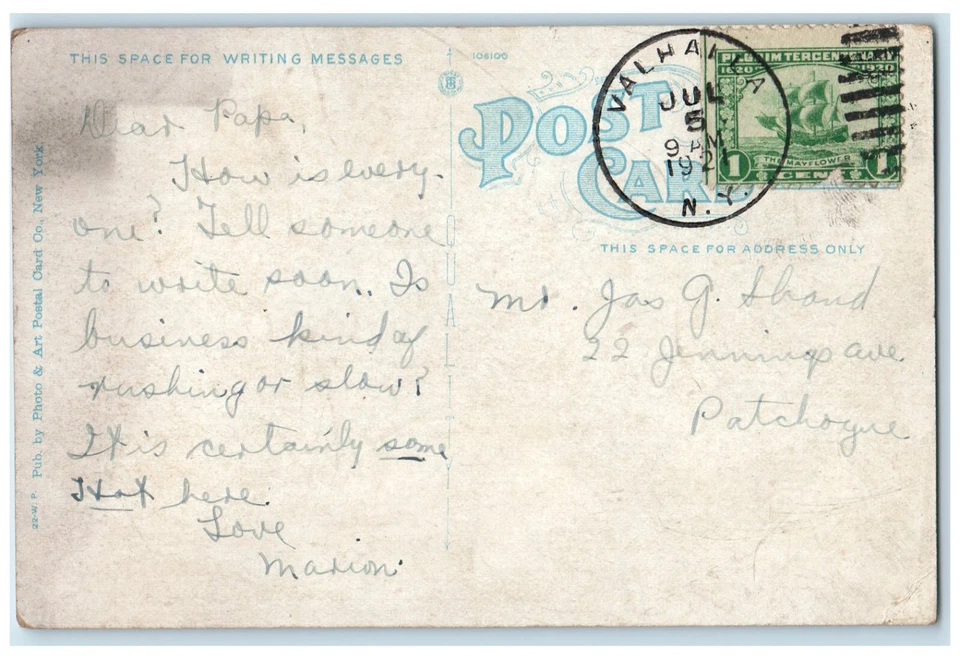 THIS SPACE FOR WRITING MESSAGES
106100
POST CARD
VALHALLA
JUL
5
9 AM
1921
N.Y.
PILGRIM TERCENTENARY
1620 1920
THE MAYFLOWER
1 CENT 1
THIS SPACE FOR ADDRESS ONLY
Dear Papa,
How is every-
one? Tell someone
to write soon. Is
business kind of
rushing or slow?
It is certainly some
Hot here.
Love
Marion.
Mr. Jas G. Shand
22 Jennings ave
Patchogue
22-W. P. Pub. by Photo & Art Postal Card Co., New York.
QUALITY